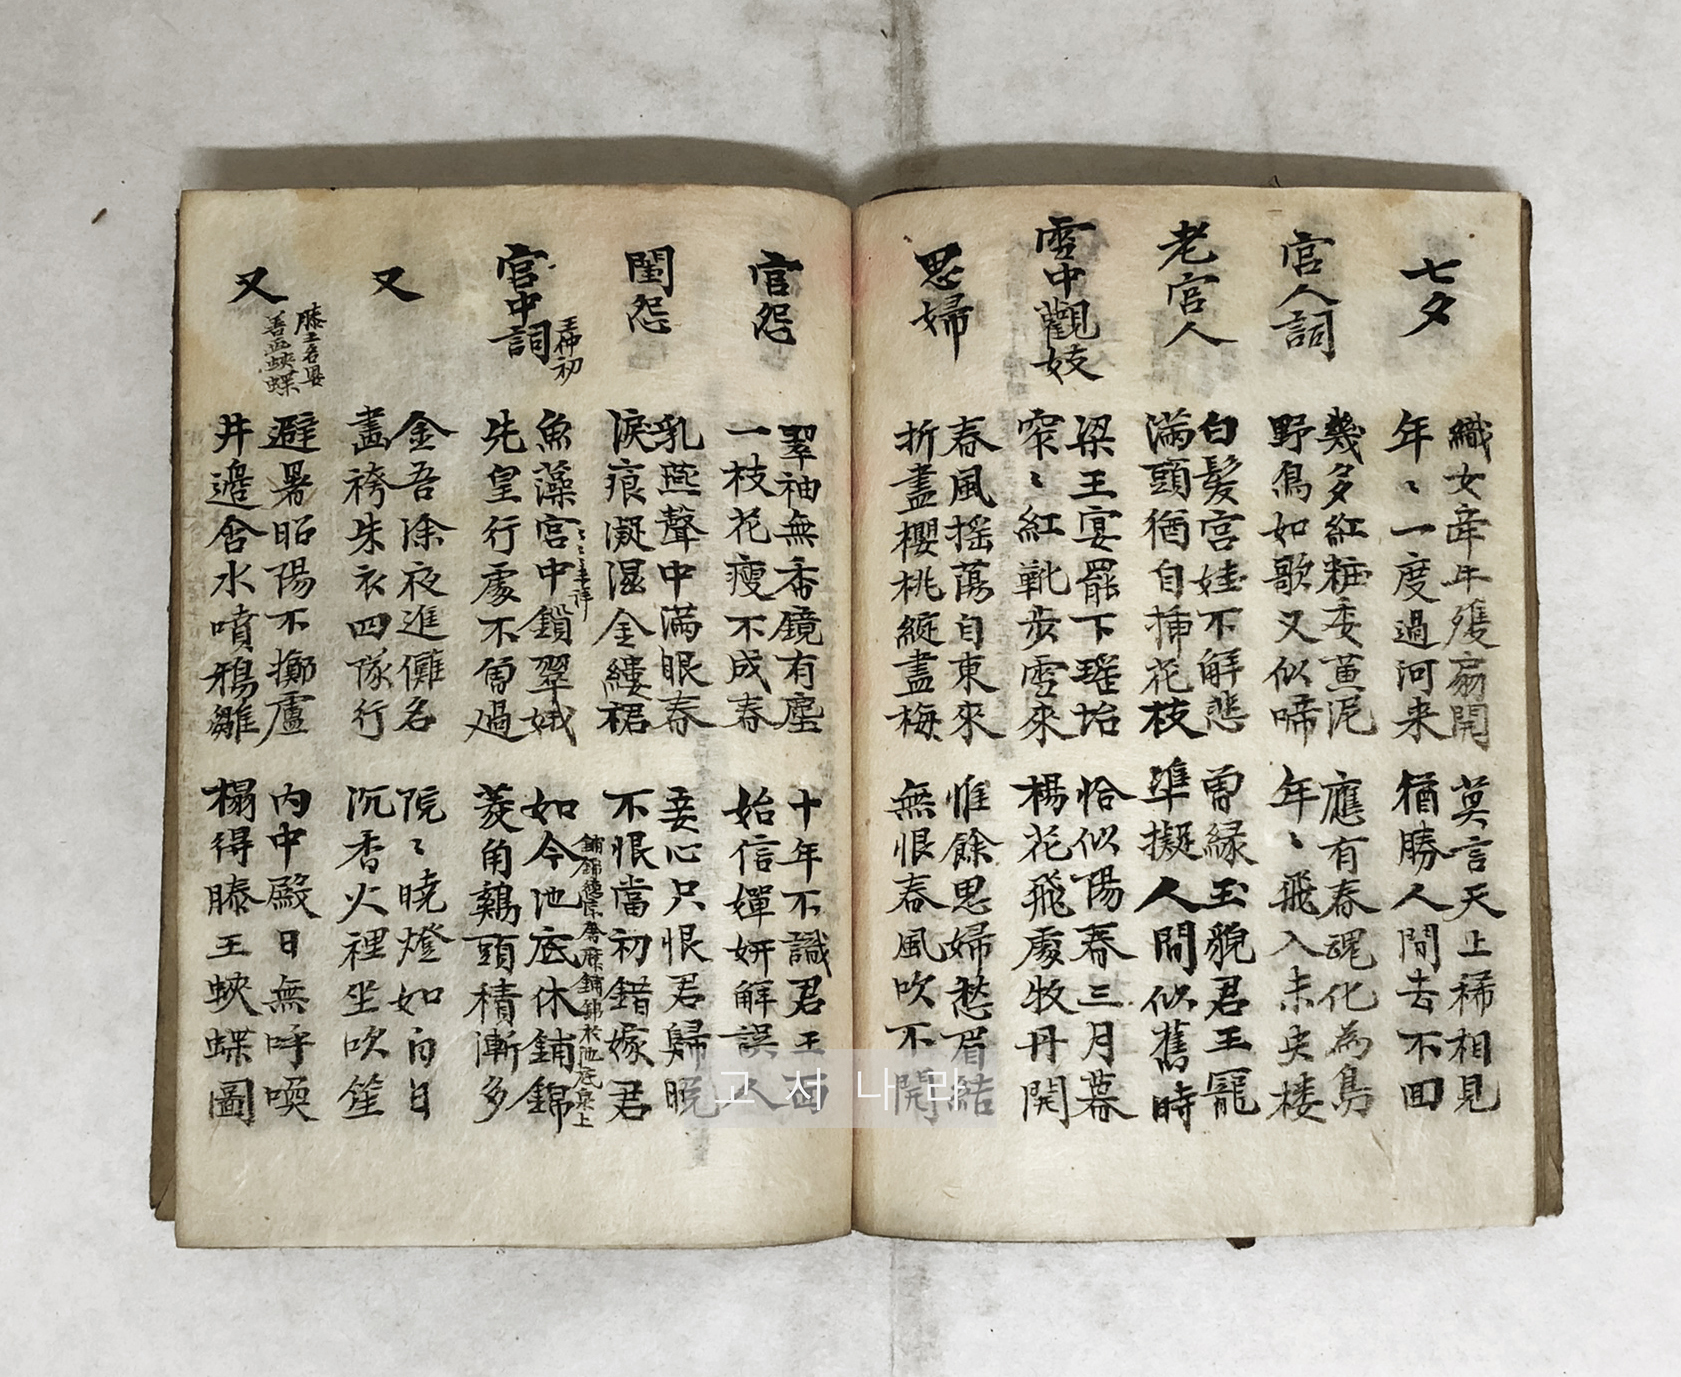 七夕
織女牽牛雙扇開 莫言天上稀相見
年〻一度過河来 猶勝人間去不回
宮人詞
幾多紅粧委黃泥 應有春魂化為鳥
野鳥如歌又似啼 年〻飛入未央楼
老宮人
白髮宮娃不解悲 曾緣玉貌君王寵
滿頭猶自揷花枝 準擬人間似舊時
雪中觀妓
梁王宴罷下瑤坮 恰似陽春三月暮
窄〻紅靴步雪來 楊花飛處牧丹開
思婦
春風搖蕩自東來 惟餘思婦愁眉結
折盡櫻桃綻盡梅 無恨春風吹不開
宮怨
翠袖無香鏡有塵 十年不識君王面
一枝花瘦不成春 始信嬋姸解誤人
閨怨
乳燕聲中滿眼春 妾心只恨君歸晩
淚痕凝濕金縷裙 不恨當初錯嫁君
宮中詞
王仲初
魚藻宮中鎖翠娥 如今池底休鋪錦
先皇行處不曾過 菱角鷄頭積漸多
又
金吾除夜進儺名 院〻曉燈如白日
畫袴朱衣四隊行 沉香火裡坐吹笙
又
滕王名
善画蛺蝶
避暑昭陽不擲盧 內中殿日無呼喚
井邊含水噴鴉雛 榻得滕王蛺蝶圖
고서나라